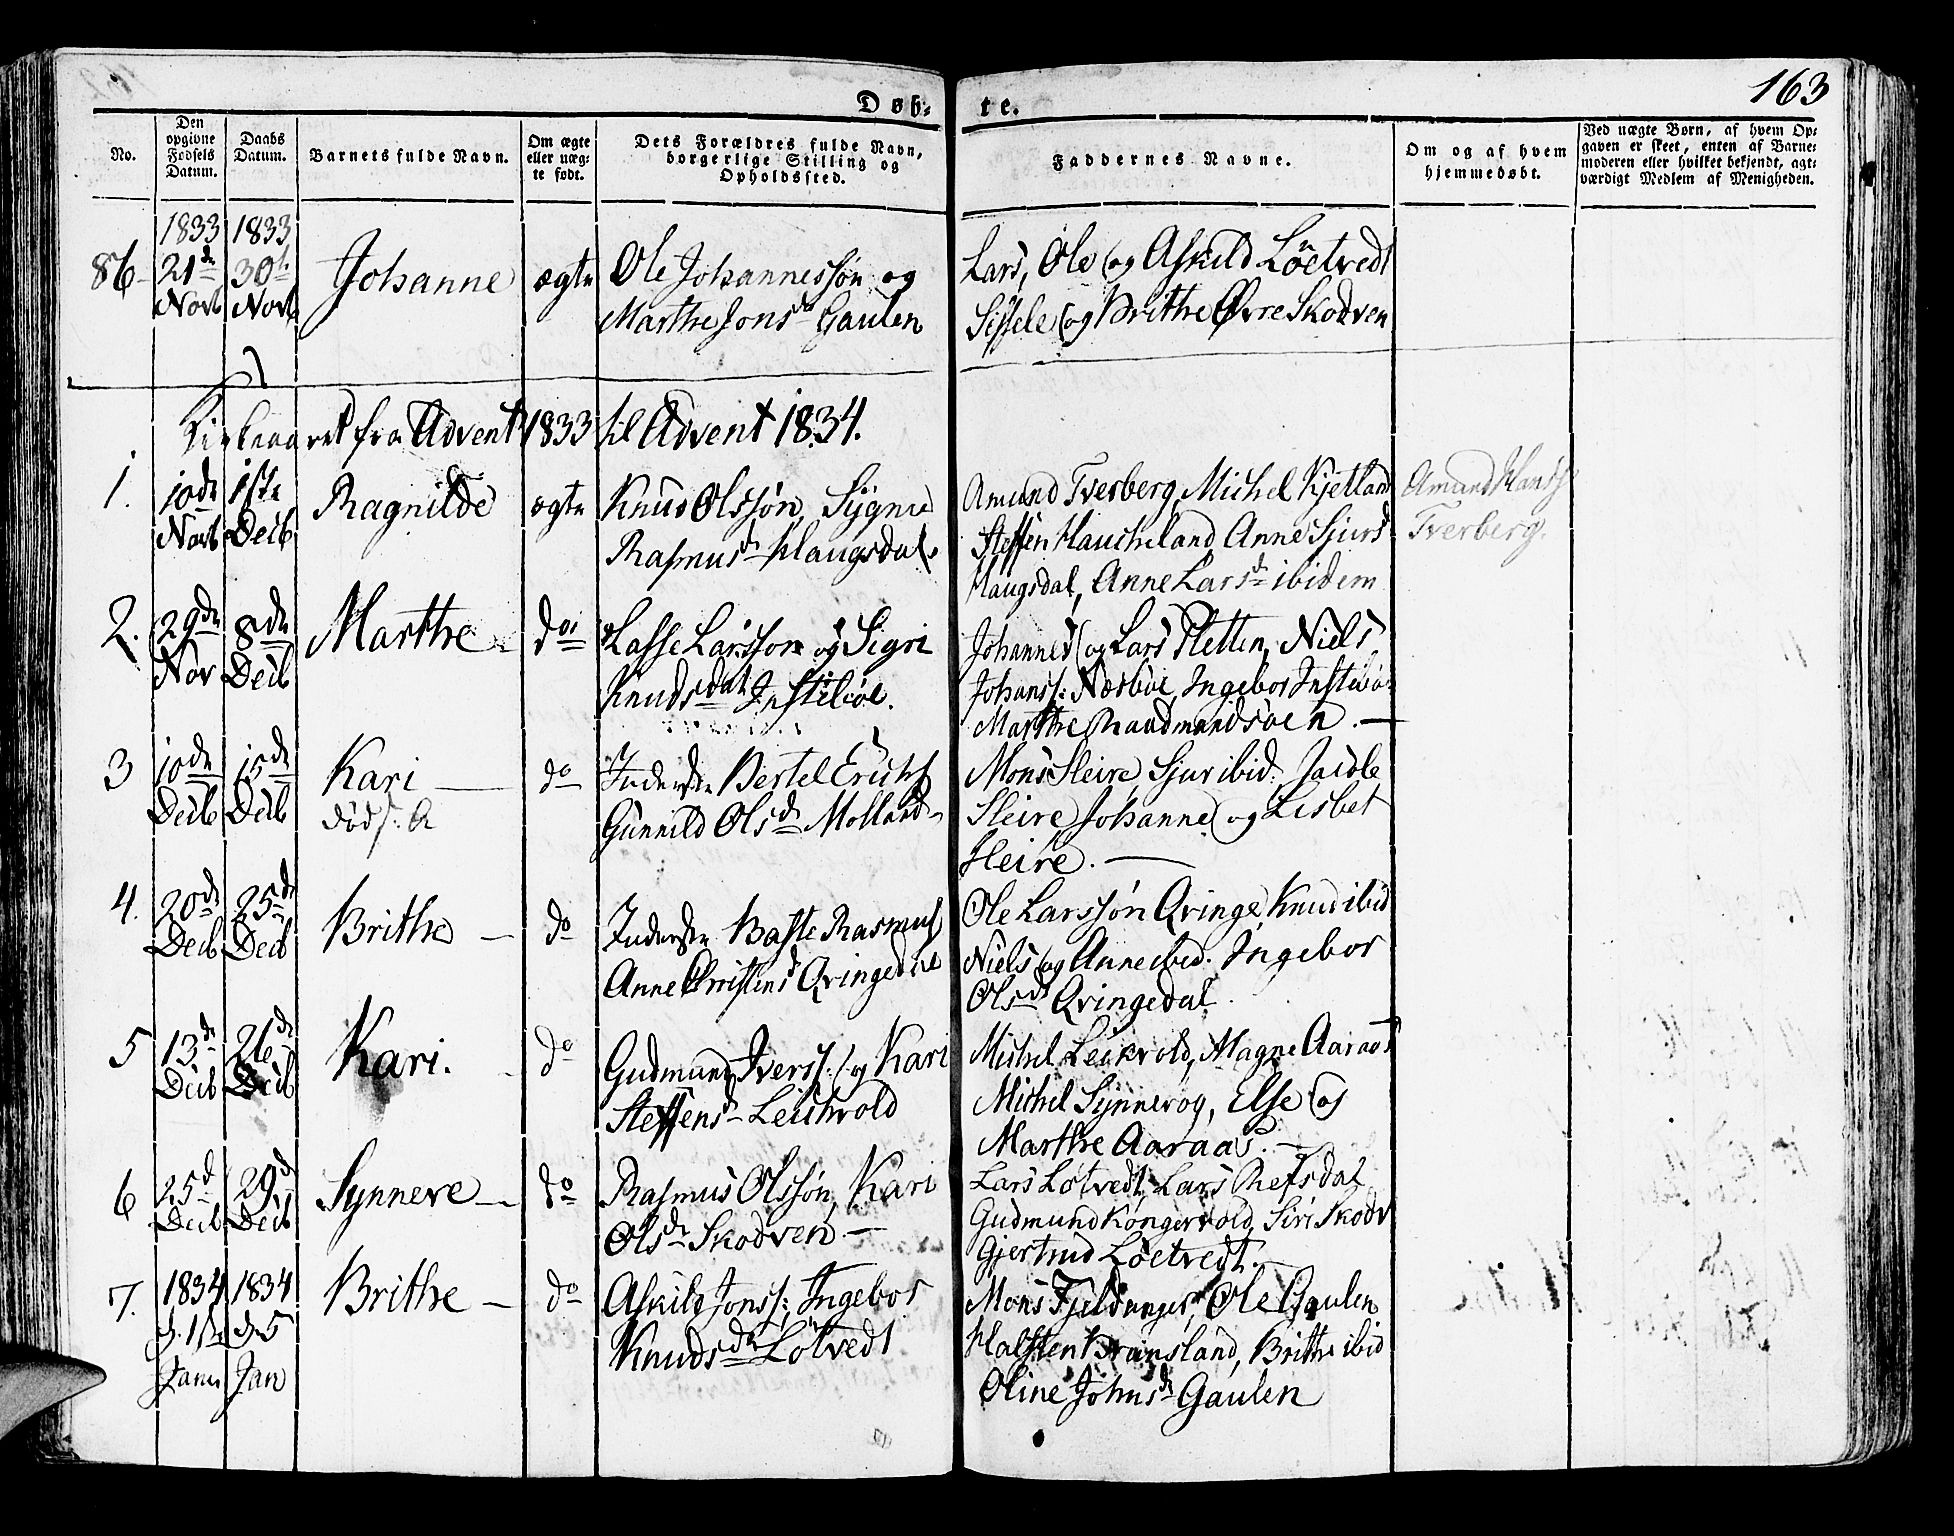 163
Døb-
te.
No.
Den opgivne Fødsels Datum.
Daabs Datum.
Barnets fulde Navn.
Om ægte eller uæg-te født.
Dets Forældres fulde Navn, borgerlige Stilling og Opholdssted.
Faddernes Navne.
Om og af hvem hjemmedøbt.
Ved uægte Børn, af hvem Op-gaven er skeet, enten af Barne-moderen eller hvilket bekjendt, agt-værdigt Medlem af Menigheden.
86
1833 21de Novb
1833 30t. Novb
Johanne
ægte
Ole Johannessøn og
Marthe Jonsdr Gaulen
Lars, Ole og Askild Löetvedt
Sissele og Brithe Øvre Skodven
Kirkeaaret fra Advent 1833 til Advent 1834.
1.
10de Novb
1ste Decb
Ragnilde
ægte
Knud Olssøn, Sygne
Rasmusdr Haugsdal.
Amund Tverberg, Michel Kjetland
Steffen Haucheland, Anne Sjursd
Haugsdal, Anne Larsd ibidem
Amund Hanss
Tverberg.
2.
29de Nov
8de Decb
Marthe
do
Lasse Larsson og Sigri
Knudsdat Instebøe.
Johannes og Lars Sletten, Niels
Johanss: Næsbøe, Ingebor Instebø
Marthe Raadmandsøen.
3
10de Decb
15de Decb
Kari
død s: A
do
Inderste Bertel Erichs
Gunnild Olsd Molland
Mons Sleire, Sjur ibid: Jacob
Sleire, Johanne og Lisbet
Sleire.
4.
20de Decb
25de Decb
Brithe
do
Inderste Baste Rasmuss
Anne Christensd Qvingedal
Ole Larssøn Qvinge, Knud ibid
Niels og Anne ibid. Ingebor
Olsdr Qvingedal.
5
13de Decb
26de Decb
Kari.
do
Gudmund Iverss: og Kari
Steffensd Leichvold
Michel Leikvold, Magne Aaraas
Michel Synnevog, Else og
Marthe Aaraas.
6
25d Decb
29d Decb
Synneve
do
Rasmus Olssøn, Kari
Olsdr Skodven
Lars Lötvedt, Lars Refsdal
Gudmund Kongsvold, Siri Skodv
Gjertrud Löetvedt.
7.
1834 d. 1ste Janu
1834 d. 5 Jan
Brithe
do
Askild Jonss: Ingebor
Knudsdr Lötvedt
Mons Fjeldanger, Ole Gaulen
Halsten Brunsland, Brithe ibid
Oline Johnsd Gaulen